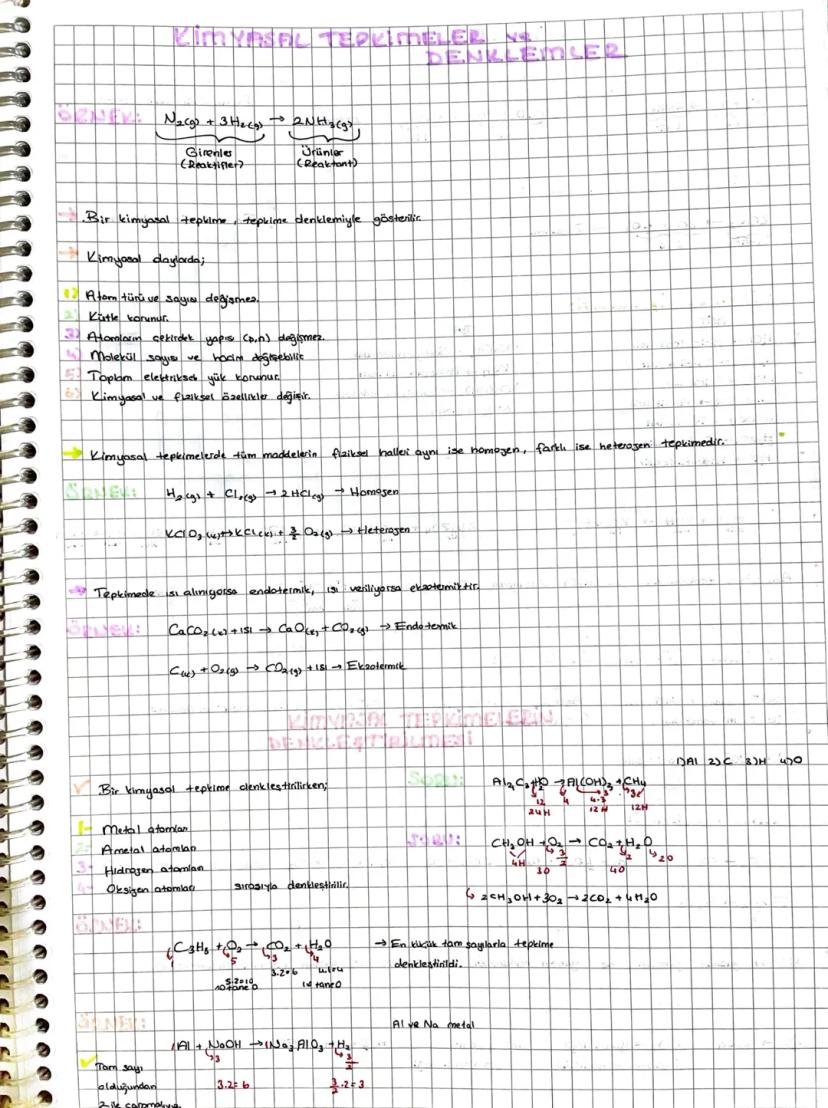 KİMYASAL TEPKİMELER ve
DENKLEMLER
ÖRNEK: N2(g) + 3H2(g) → 2NH3(g)
Girenler Ürünler
(Reaktifler) (Reaktant)
→ Bir kimyasal tepkime, tepkime denklemiyle gösterilir.
→ Kimyasal olaylarda;
1) Atom türü ve sayısı değişmez.
2) Kütle korunur.
3) Atomların çekirdek yapısı (p,n) değişmez.
4) Molekül sayısı ve hacim değişebilir.
5) Toplam elektriksel yük korunur.
6) Kimyasal ve fiziksel özellikler değişir.
→ Kimyasal tepkimelerde tüm maddelerin fiziksel halleri aynı ise homojen, farklı ise heterojen tepkimedir.
ÖRNEK: H2(g) + Cl2(g) → 2HCl(g) → Homojen
KClO3(k) → KCl(k) + 3/2 O2(g) → Heterojen
→ Tepkimede ısı alınıyorsa endotermik, ısı veriliyorsa ekzotermiktir.
ÖRNEK: CaCO2(k) + ısı → CaO(k) + CO2(g) → Endotermik
C(k) + O2(g) → CO2(g) + ısı → Ekzotermik
KİMYASAL TEPKİMELERİN
DENKLEŞTİRİLMESİ
✓ Bir kimyasal tepkime denkleştirilirken;
1- Metal atomları
2- Ametal atomları
3- Hidrojen atomları
4- Oksijen atomları sırasıyla denkleştirilir.
1)Al 2)C 3)H 4)O
SORU: Al4C3 + H2O → Al(OH)3 + CH4
12 4 4.3 3
24H 12H 12H
SORU: CH3OH + O2 → CO2 + H2O
4H 3/2 2 2O
3O 4O
2CH3OH + 3O2 → 2CO2 + 4H2O
ÖRNEK:
C3H8 + O2 → CO2 + H2O → En küçük tam sayılarla tepkime
1 5 3 4 denkleştirildi.
5.2=10 3.2=6 4.1=4
10 tane O 10 tane O
ÖRNEK: Al ve Na metal
1Al + NaOH → 1Na3AlO3 + H2
3 3/2
✓ Tam sayı
olduğundan 3.2=6 3/2.2=3
2 ile çarpmalıyız